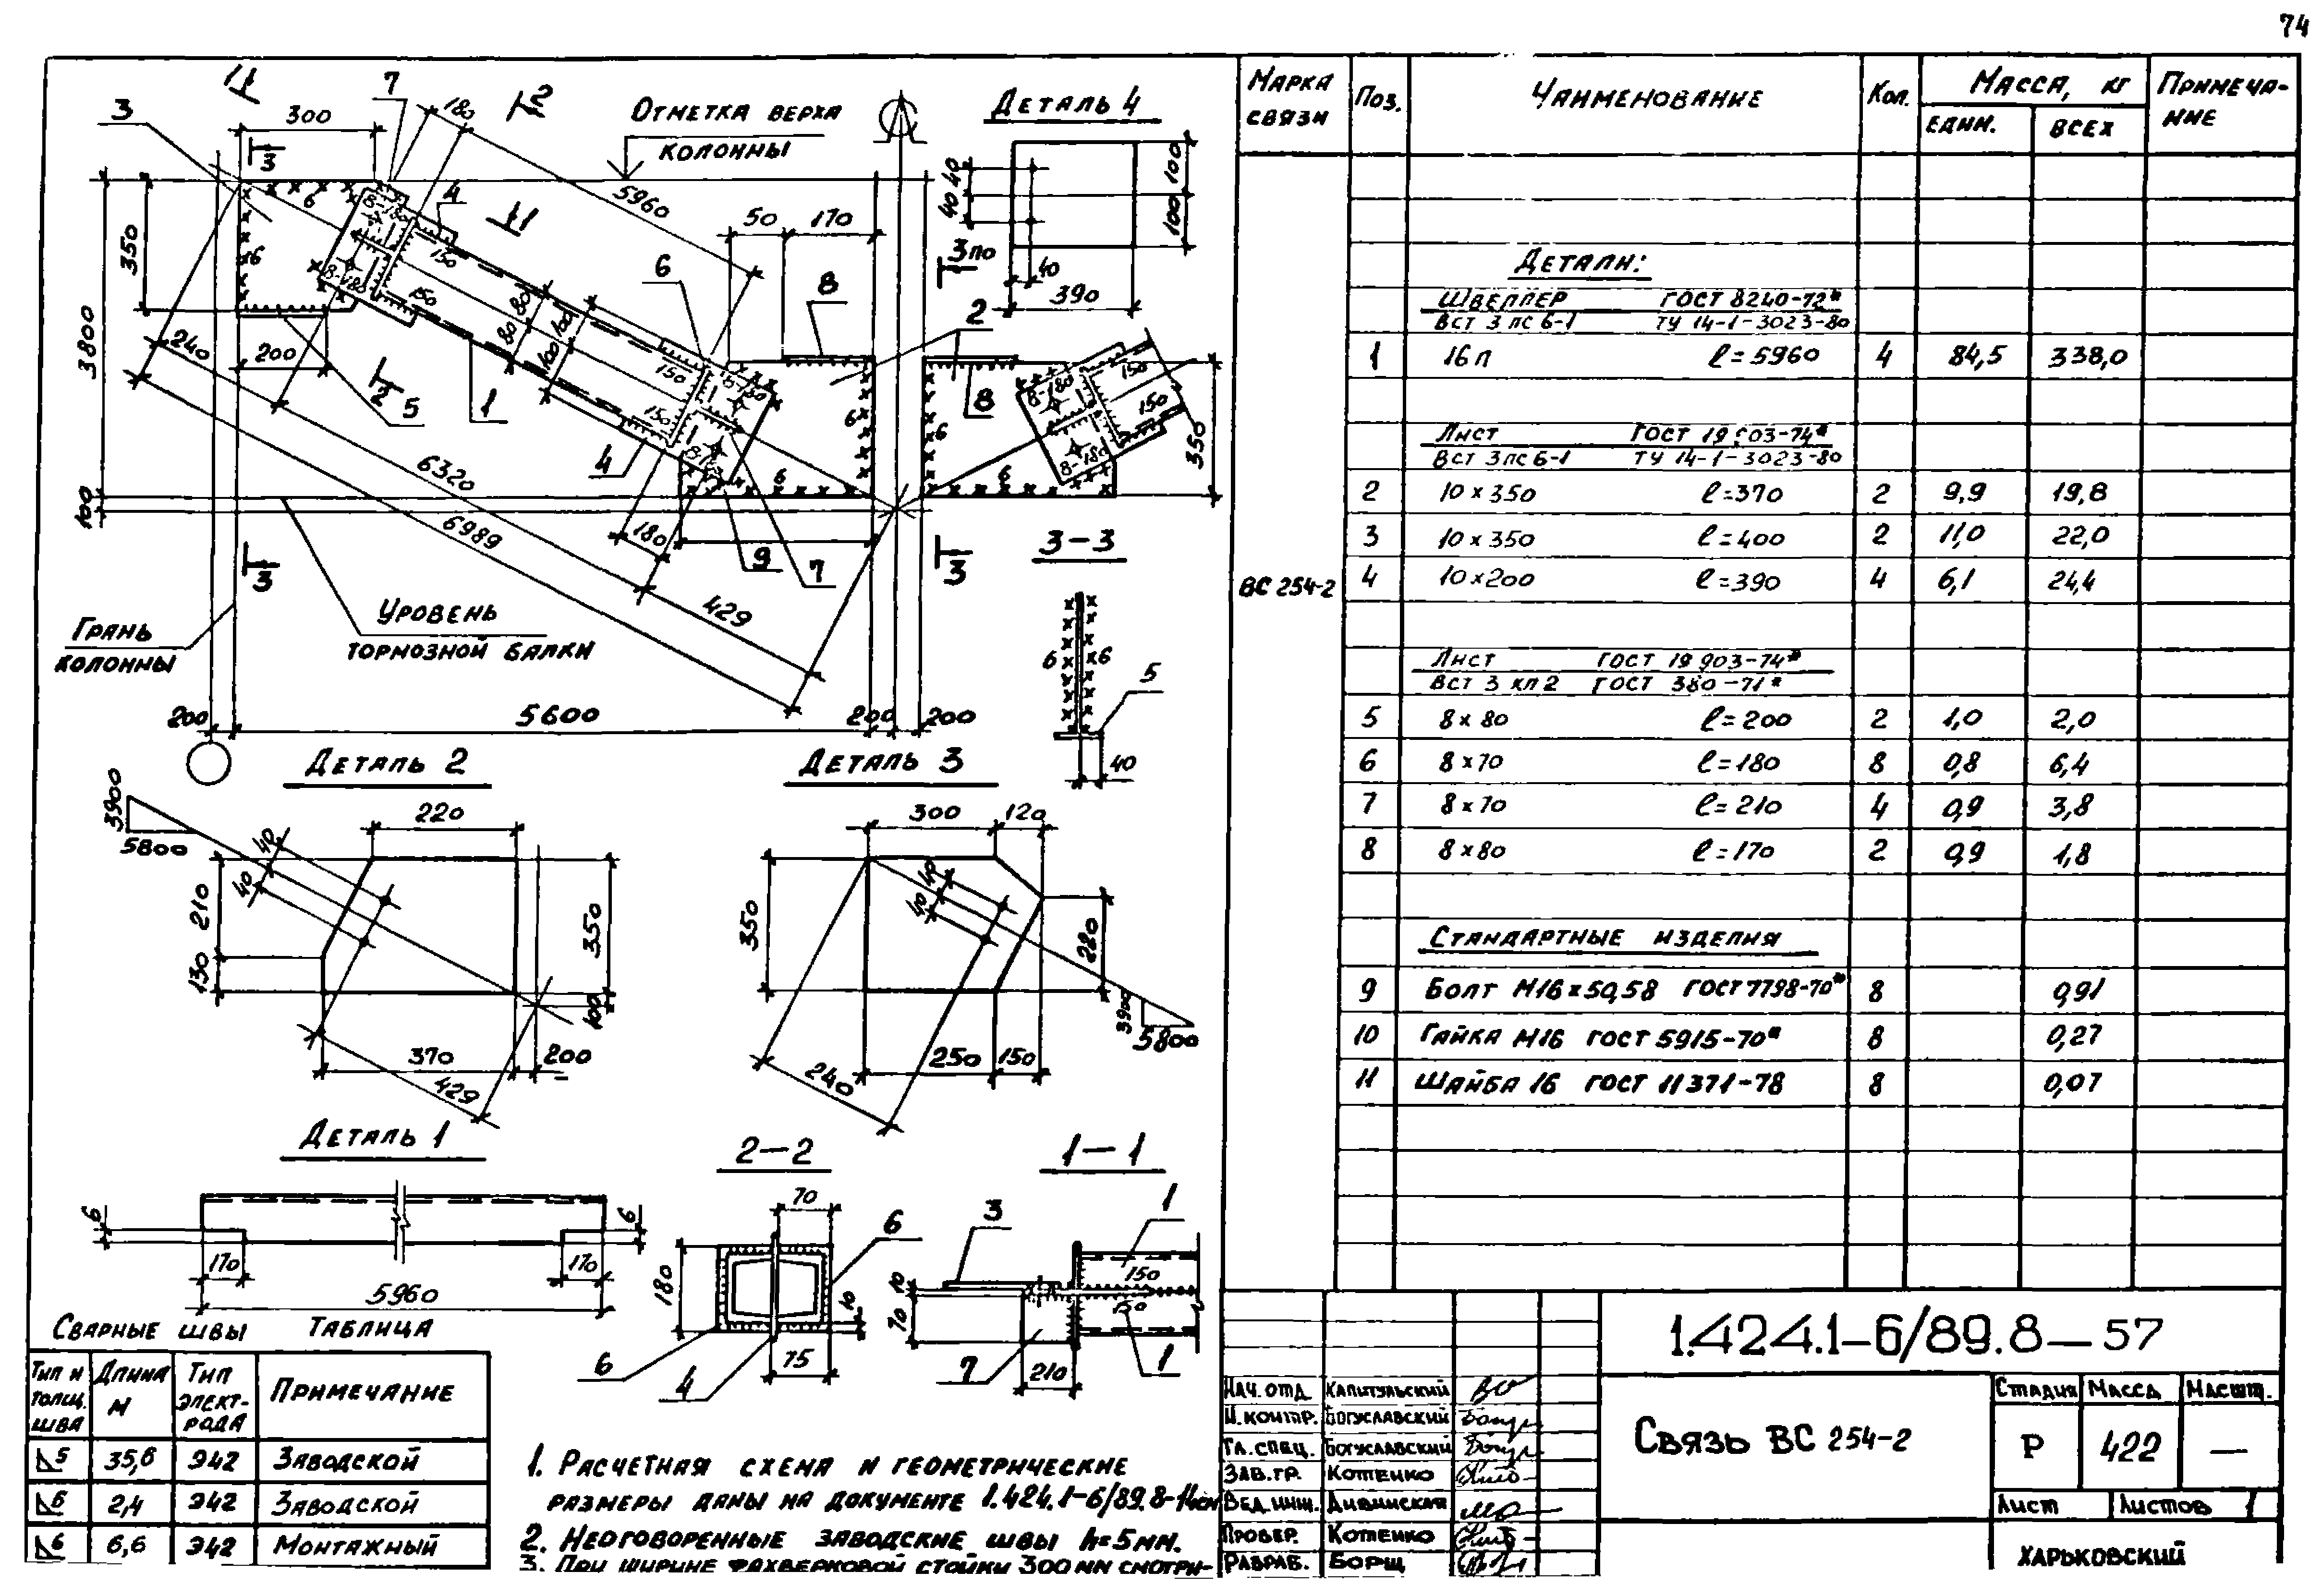 74
1 2
3 7 180
300
Отметка верха
колонны
5960
50 170
3 3 по
6 8-180 4 1
350
3800
16 8-180 150 150
80 80 100 100
6 8 2
240 200
2 5 1
150 8-180 6
4 150 8-180
6320
6989
100
180
9 7
429
3 3
Грань
колонны
Уровень
тормозной балки
200 5600 200 200
Деталь 4
40 40 100 100
40
390
8 6 8-180 150
8-180 150
350
6
3-3
6 6
5
40
Деталь 2
3900
5800
220
40 40
210
130
350
100
370 200
429
Деталь 3
300 120
350
40 40
280
3900
5800
250 150
240
Деталь 1
6 6
170 170
5960
2-2
70
6
180
10
6 4 75
1-1
3 1
10 150
70 150
7 210 1
Сварные швы Таблица
Тип и толщ. шва Длина м Тип электрода Примечание
5 35,6 Э42 Заводской
6 2,4 Э42 Заводской
6 6,6 Э42 Монтажный
1. Расчетная схема и геометрические
размеры даны на документе 1.424.1-6/89.8-14см
2. Неоговоренные заводские швы h=5мм.
3. При ширине фахверковой стойки 300 мм смотри-
Марка связи Поз. Наименование Кол. Масса, кг Примечание
един. всех
Детали:
Швеллер ГОСТ 8240-72*
ВСт 3 пс 6-1 ТУ 14-1-3023-80
1 16п ℓ=5960 4 84,5 338,0
Лист ГОСТ 19903-74*
ВСт 3пс 6-1 ТУ 14-1-3023-80
2 10×350 ℓ=370 2 9,9 19,8
3 10×350 ℓ=400 2 11,0 22,0
ВС 254-2 4 10×200 ℓ=390 4 6,1 24,4
Лист ГОСТ 19903-74*
ВСт 3 кп 2 ГОСТ 380-71*
5 8×80 ℓ=200 2 1,0 2,0
6 8×70 ℓ=180 8 0,8 6,4
7 8×70 ℓ=210 4 0,9 3,8
8 8×80 ℓ=170 2 0,9 1,8
Стандартные изделия
9 Болт М16×50,58 ГОСТ 7798-70* 8 0,91
10 Гайка М16 ГОСТ 5915-70* 8 0,27
11 Шайба 16 ГОСТ 11371-78 8 0,07
1.424.1-6/89.8-57
Нач. отд. Капитульский
Н. контр. Богуславский
Гл. спец. Богуславский
Зав. гр. Котенко
Вед. инж. Дивинская
Провер. Котенко
Разраб. Борщ
Связь ВС 254-2
Стадия Масса Масшт.
Р 422 —
Лист Листов 1
Харьковский